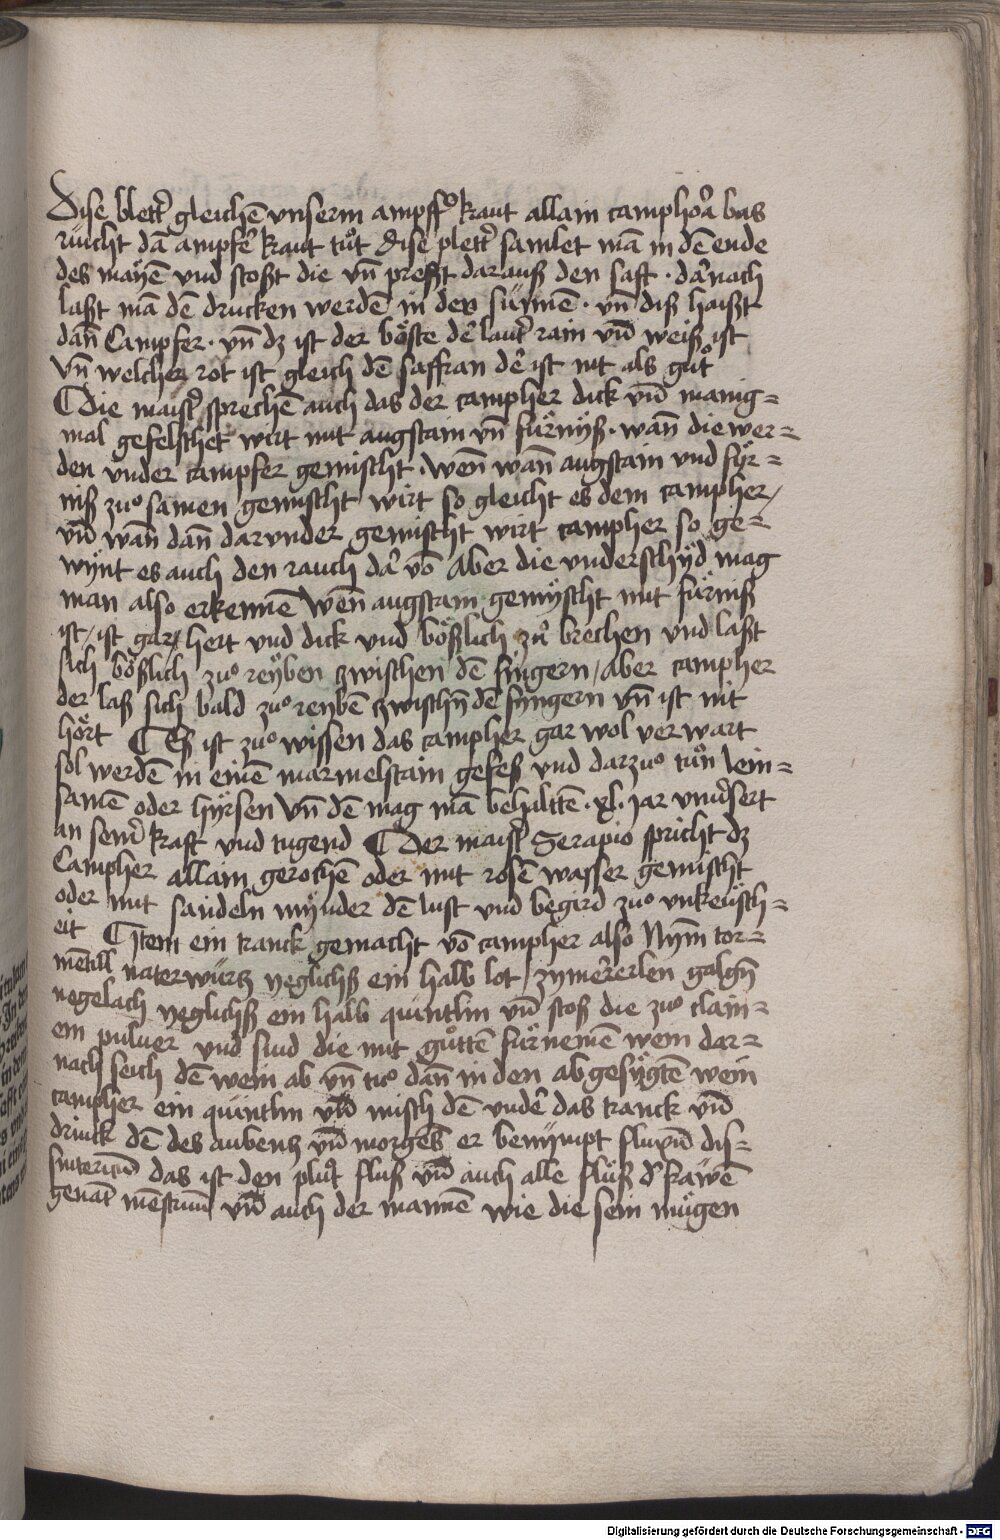 Dise blett͛ gleichē vnserm ampff͛ kraut allain camphora bas
rüicht dā ampfer kraut tůt Dise plett͛ samlet mā in dē ende
des mayē vnd stoßt die vn̄ preßt darauß den saft · darnach
laßt mā dē drucken werdē in der sünnē · vn̄ diß haißt
dan̄ Campfer · vn̄ dz ist der böste der laut͛ rain vn̄d weiß ist
Vn̄ welcher rot ist gleich dē saffran der ist nit als gůt
Die maist͛ sprechē auch das der campher dick vn̄d manig=
mal gefelschet wirt mit augstam vn̄ fürnyß · wan̄ die wer=
den vnder campfer gemischt · wen̄ wan̄ augstain vnd fyr=
niß zuo samen gemischt wirt so gleicht es dem campher /
vn̄d wan̄ dan̄ darvnder gemischt wirt campher so ge=
wÿnt es auch den rauch dar vō Aber die vnderschÿd mag
man also erkennē Wen̄ augstam gemÿscht mit fürniß
ist / ist gar hert vnd dick vnd bößlich zů brechen vnd laßt
sich bößlich zuo reÿben zwischen dē fingern / aber campher
der laß sich bald zuo reybē zwischn̄ dē fyngern vn̄ ist nit
hört Es ist zuo wissen das campher gar wol verwart
sol werdē in einē marmelstain gefeß vnd darzuo tůn lein=
samē oder hÿrsen Vn̄ dē mag mā behalttē · xl · jar vnu͛sert
an sein͛ kraft vnd tugend Der maist͛ Serapio spricht dz
Campher allain gerochē oder mit rosē wasser gemischt
oder mit sandeln mÿnder dē lust vnd begird zuo vnkeüsch=
eit Item ein tranck gemacht vō campher also Nym̄ tor=
mētill naterwürtz yeglichß ein halb lot / zymerērlen galgn̄
negelach yeglichß ein halb quintlin vn̄d stoß die zuo clain=
em puluer vnd siud die mit gůttē fürnemē wem dar=
nach seich dē wein ab vn̄ tuo dan̄ in den abgesÿgtē wein
campher ein quintlin vn̄d misch dē vnder das tranck vn̄d
drinck dē des aubentz vn̄d morgēs er benÿmpt fluxū dis=
sintericū das ist den plůt fluß vn̄d auch alle flüß d͛ frawē
genāt mēstruū vn̄d auch der mannē wie die sein mügen
Digitalisierung gefördert durch die Deutsche Forschungsgemeinschaft - DFG